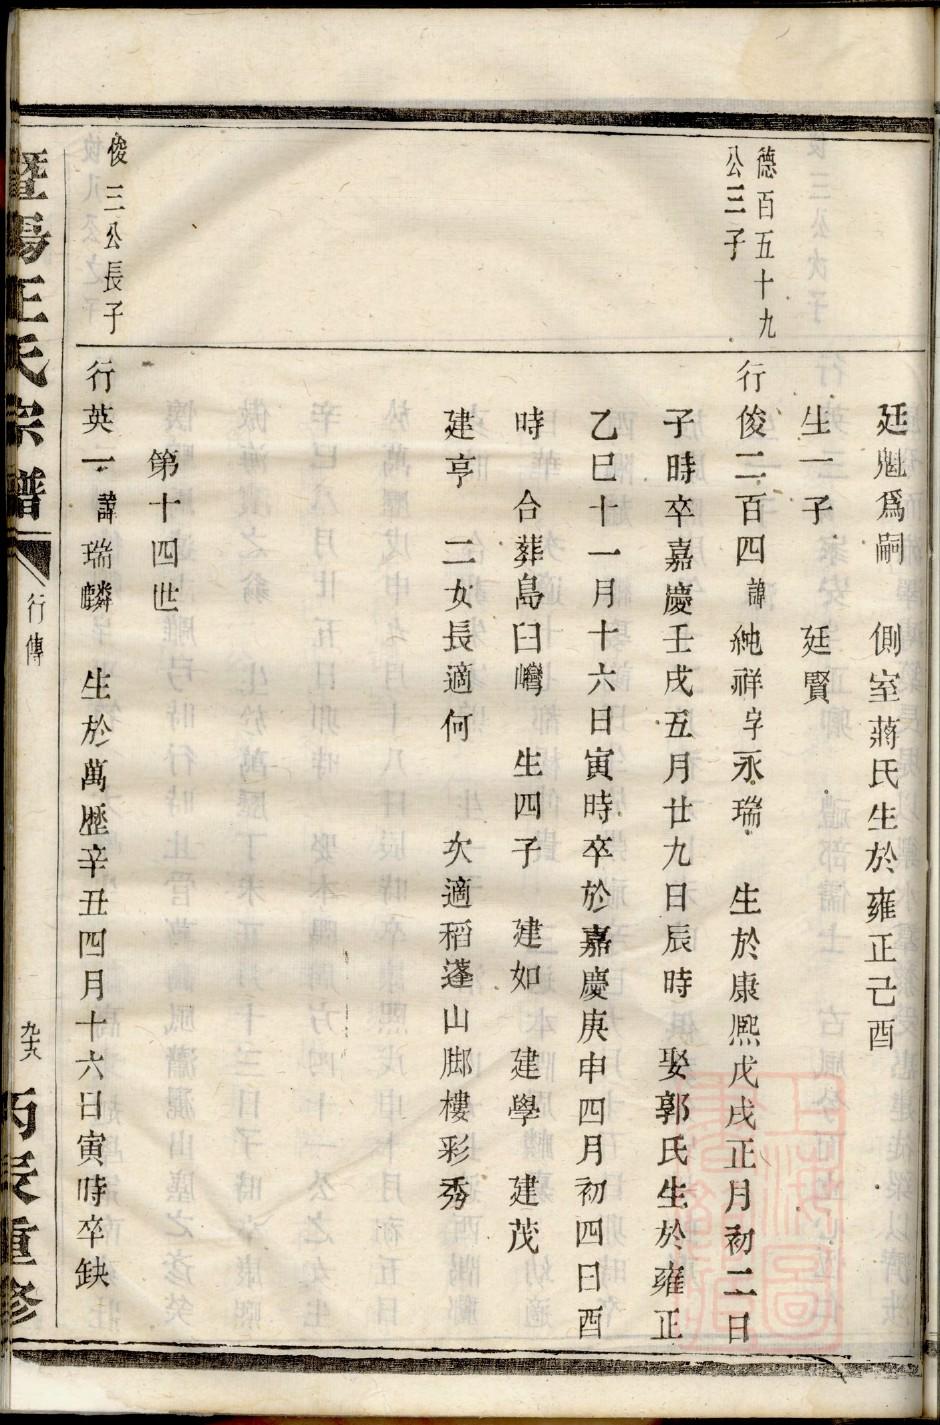 廷魁爲嗣　側室蔣氏生於雍正己酉
生一子　廷賢
德百五十九
公三子
行俊二百四諱純祥字永瑞　生於康熙戊戌正月初二日
子時卒嘉慶壬戌五月廿九日辰時　娶郭氏生於雍正
乙巳十一月十六日寅時卒於嘉慶庚申四月初四日酉
時　合葬島臼灣　生四子　建如　建學　建茂
建亨　二女長適何　次適稻蓬山腳樓彩秀
第十四世
俊三公長子
行英一諱瑞麟　生於萬歷辛丑四月十六日寅時卒缺
暨陽王氏宗譜
行傳
丙辰重修